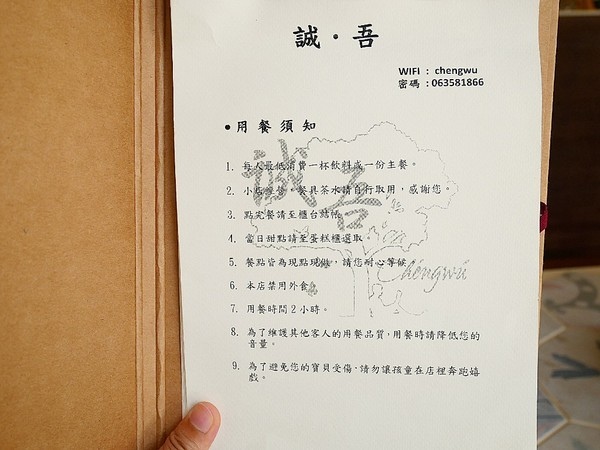 誠・吾
WIFI : chengwu
密碼 : 063581866
•用餐須知
1. 每人最低消費一杯飲料或一份主餐。
2. 小店經營，餐具茶水請自行取用，感謝您。
3. 點完餐請至櫃台結帳
4. 當日甜點請至蛋糕櫃選取
5. 餐點皆為現點現做，請您耐心等候
6. 本店禁用外食
7. 用餐時間2小時。
8. 為了維護其他客人的用餐品質，用餐時請降低您的
音量。
9. 為了避免您的寶貝受傷，請勿讓孩童在店裡奔跑嬉
戲。
誠吾
Chengwu